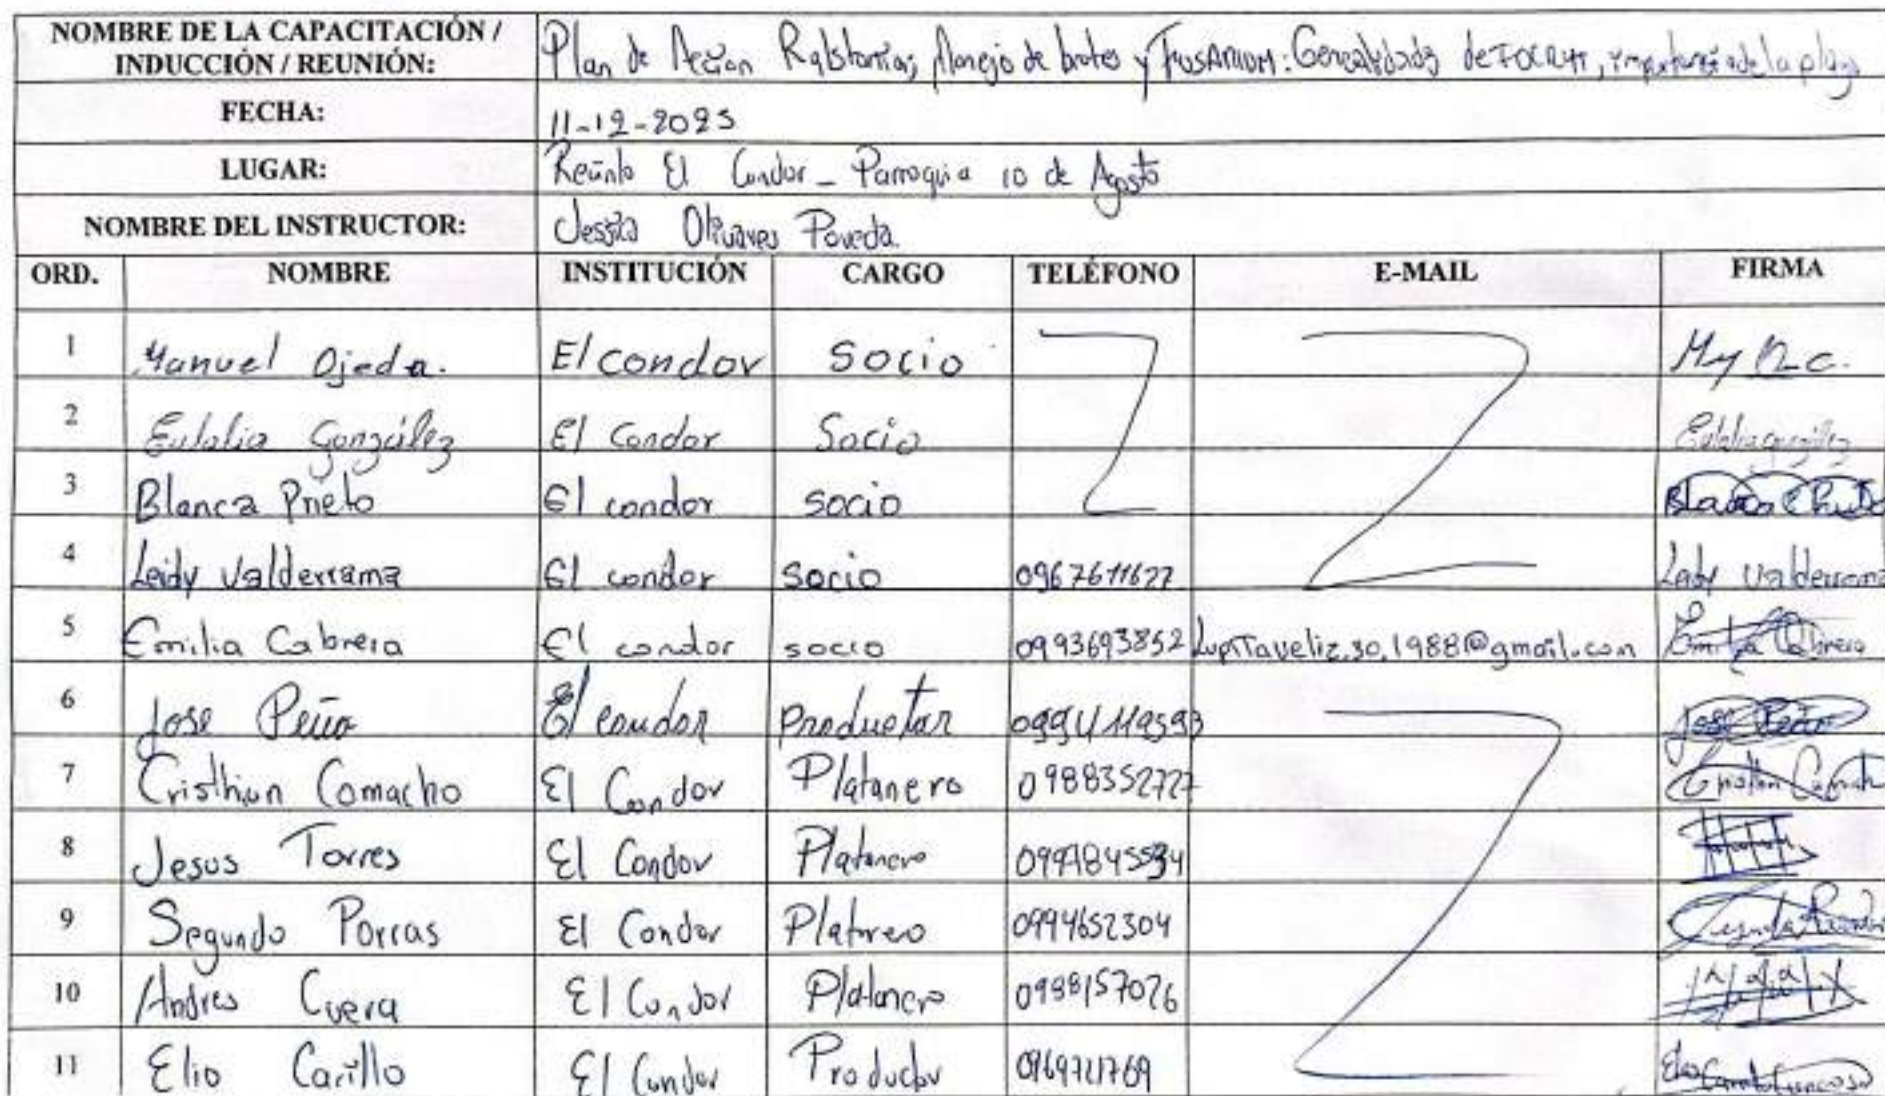 NOMBRE DE LA CAPACITACIÓN / INDUCCIÓN / REUNIÓN: Plan de Acción Ralstonia, Manejo de brotes y FusARIUM: Generalidades de FOCR4T, importancia de la plaga
FECHA: 11-12-2025
LUGAR: Recinto El Condor - Parroquia 10 de Agosto
NOMBRE DEL INSTRUCTOR: Jessica Olivares Poveda.
ORD. NOMBRE INSTITUCIÓN CARGO TELÉFONO E-MAIL FIRMA
1 Manuel Ojeda. El condor Socio
2 Eulalia González El Condor Socio Eulalia González
3 Blanca Prieto El condor socio
4 Leidy Valderrama El condor socio 0967611677 Lady Valderrama
5 Emilia Cabrera El condor socio 0993693852 LupiTaveliz.30.1988@gmail.com Emilia Cabrera
6 Jose Peña El condor Productor José Peña
7 Cristhian Camacho El Condor Platanero 0988352727
8 Jesus Torres El Condor Platanero
9 Segundo Porras El Condor Platanero 0994652304
10 Andres Cueva El Condor Platanero 0988157026
11 Elio Carillo El Condor Productor 0969721769